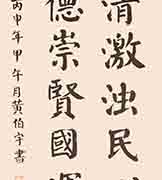 清激浊民
德崇賢國運
丙申年甲午月黄伯宇書